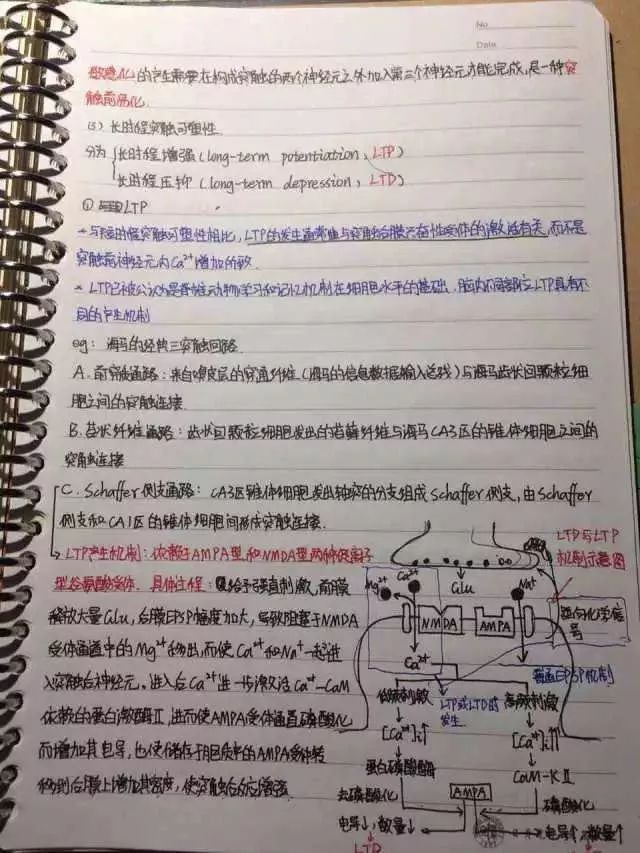 No.
Date
敏感化的产生需要在构成突触的两个神经元之外加入第三个神经元才能完成,是一种突
触前易化.
(3) 长时程突触可塑性
分为 长时程增强(long-term potentiation, LTP)
长时程压抑(long-term depression, LTD)
① LTP
* 与短时程突触可塑性相比, LTP的发生通常由与突触后膜兴奋性受体的激活有关,而不是
突触前神经元内Ca²⁺增加所致.
* LTP已被公认为是脊椎动物学习和记忆机制在细胞水平的基础. 脑内不同部位LTP具有不
同的产生机制
eg: 海马的经典三突触回路.
A. 前穿质通路:来自嗅皮层的穿通纤维(海马的信息数据输入总线)与海马齿状回颗粒细
胞之间的突触连接.
B. 苔状纤维通路:齿状回颗粒细胞发出的苔藓纤维与海马CA3区的锥体细胞之间的
突触连接
C. Schaffer侧支通路: CA3区锥体细胞发出轴突的分支组成Schaffer侧支,由Schaffer
侧支和CA1区的锥体细胞间形成突触连接.
LTP产生机制:依赖于AMPA型和NMDA型两种促离子
型谷氨酸受体. 具体过程: 给予强直刺激,前膜
释放大量Glu,后膜EPSP幅度加大,导致阻塞于NMDA
受体通道中的Mg²⁺移出,而使Ca²⁺和Na⁺一起进
入突触后神经元.进入后Ca²⁺进一步激活Ca²⁺-CaM
依赖的蛋白激酶Ⅱ,进而使AMPA受体通道磷酸化
而增加其电导,也使储存于胞质中的AMPA受体转
移到后膜上增加其密度,使突触后的反应增强
LTD与LTP
机制示意图
Glu
Mg²⁺
Ca²⁺
Na⁺
NMDA
AMPA
逆向化学信
号
Ca²⁺
EPSP机制
低频刺激
LTP或LTD的
发生
高频刺激
[Ca²⁺]ᵢ↑
[Ca²⁺]ᵢ⇈
蛋白磷酸酶
CaM-KⅡ
去磷酸化
AMPA
磷酸化
电导↓,数量↓
电导↑,数量↑
LTD